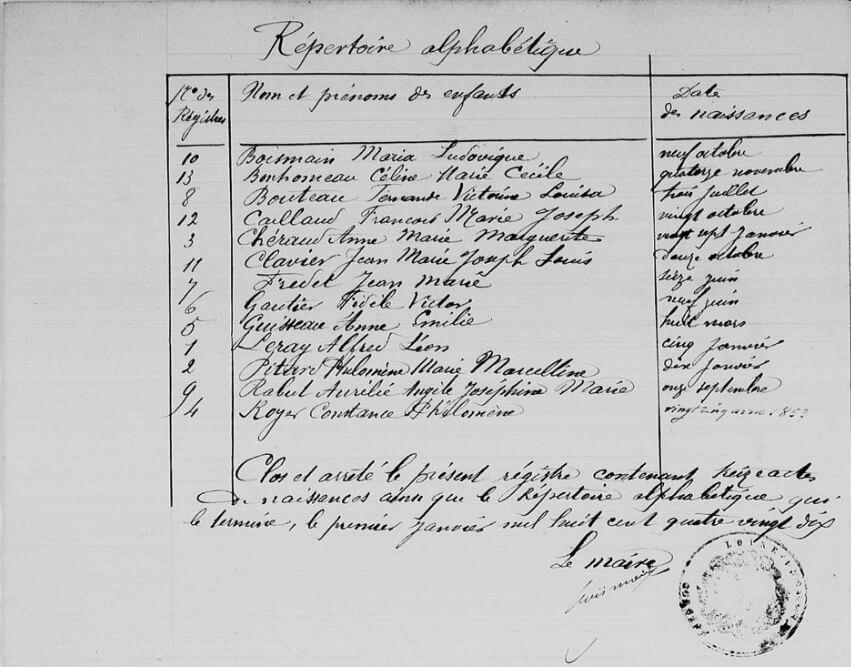 Répertoire alphabétique
Nos des Régistres Nom et prénoms des enfants Date des naissances
10 Boismain Maria Ludovique neuf octobre
13 Bonhomeau Céline Marie Cécile quatorze novembre
8 Bouteau Victoire Louisa trois juillet
12 Caillaud François Marie Joseph vingt octobre
3 Chéraud Anne Marie Marguerite vingt sept janvier
11 Clavier Jean Marie Joseph Louis douze octobre
7 Fredet Jean Marie seize juin
6 Gautier Fidèle Victor neuf juin
5 Guisseau Anne Emilie huit mars
1 Leray Alfred Léon cinq janvier
2 Philomène Marie Marcelline dix janvier
9 Rabut Aurilie Angèle Joséphine Marie onze septembre
4 Royer Constance Philomène
Clos et arrêté le présent régistre contenant treize actes
de naissances ainsi que le Répertoire alphabétique qui
le termine, le premier janvier mil huit cent quatre vingt dix
Le maire